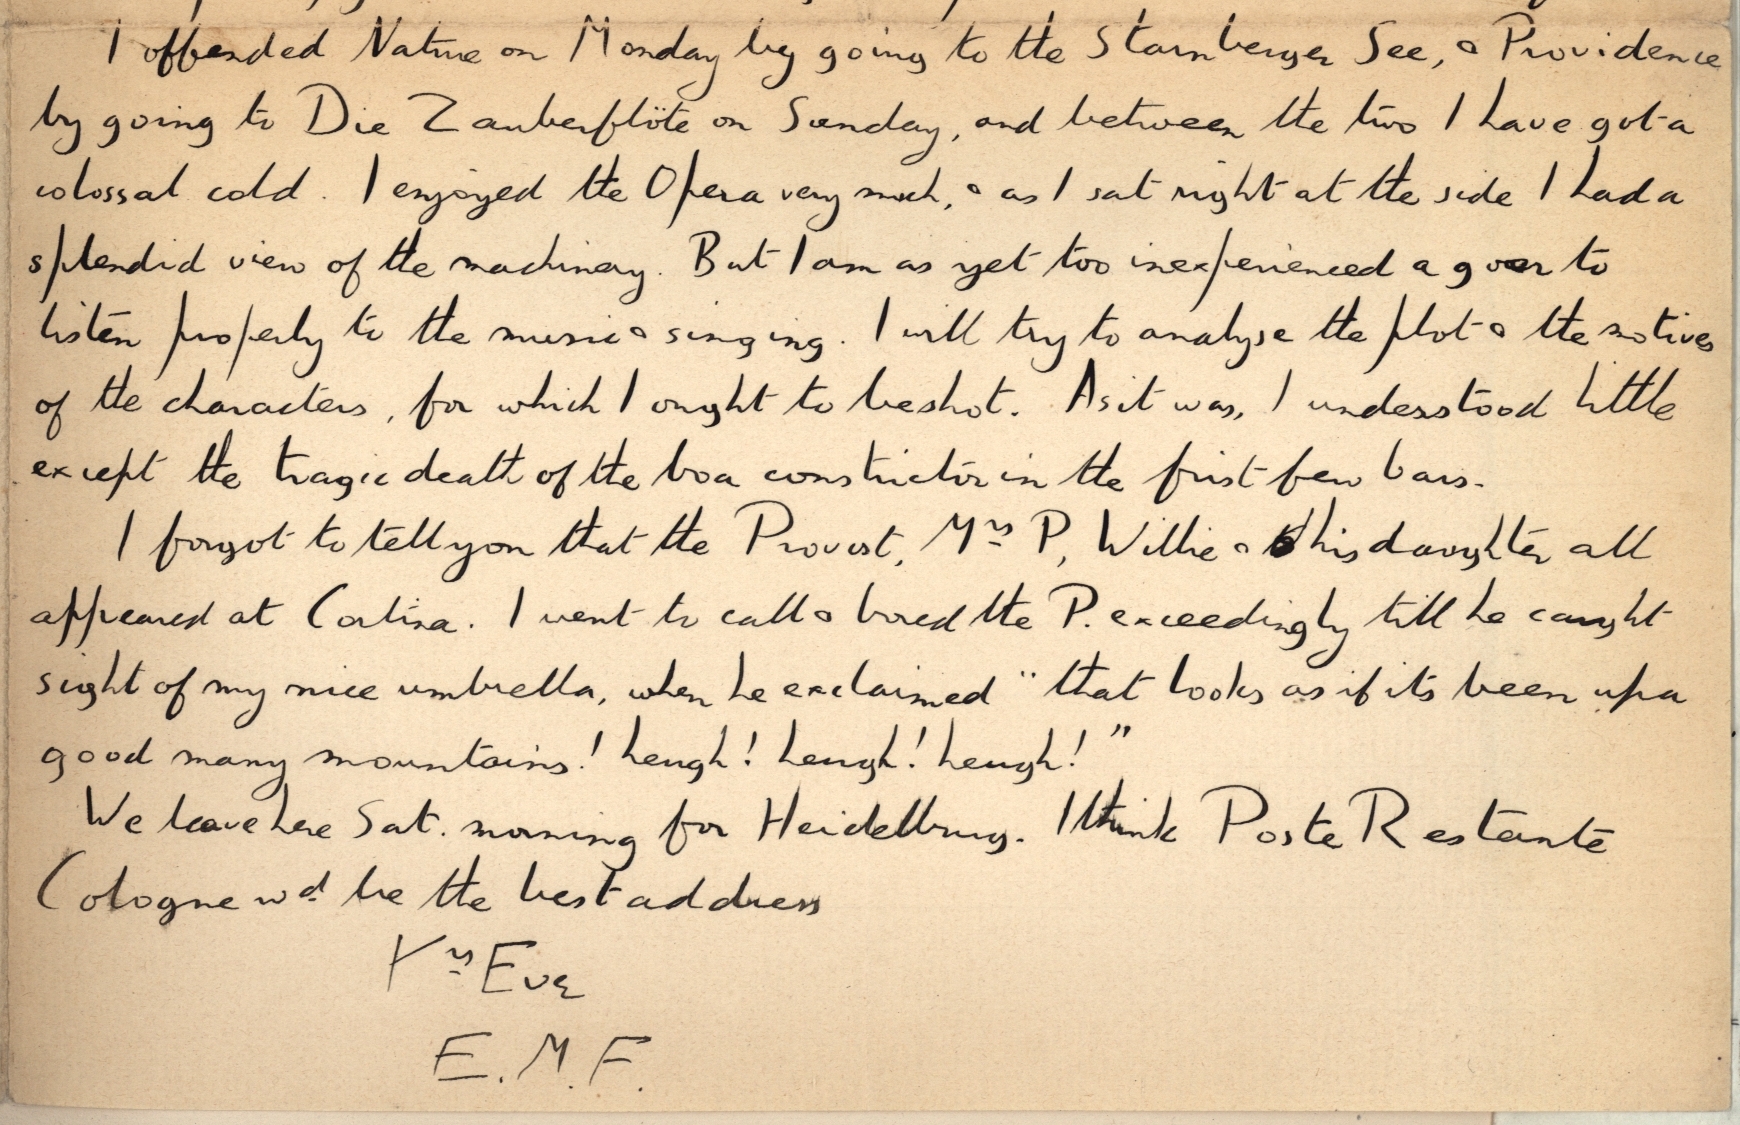 I offended Nature on Monday by going to the Starnberger See, & Providence
by going to Die Zauberflöte on Sunday, and between the two I have got a
colossal cold. I enjoyed the Opera very much, & as I sat right at the side I had a
splendid view of the machinery. But I am as yet too inexperienced a goer to
listen properly to the music & singing. I will try to analyse the plot & the motives
of the characters, for which I ought to be shot. As it was, I understood little
except the tragic death of the boa constrictor in the first few bars.
I forgot to tell you that the Provost, Mrs P, Willie & his daughter all
appeared at Cortina. I went to call & bored the P. exceedingly till he caught
sight of my nice umbrella, when he exclaimed "that looks as if its been up a
good many mountains! heugh! heugh! heugh!"
We leave here Sat. morning for Heidelburg. I think Poste Restante
Cologne wd be the best address
Yrs Eve
E.M.F.